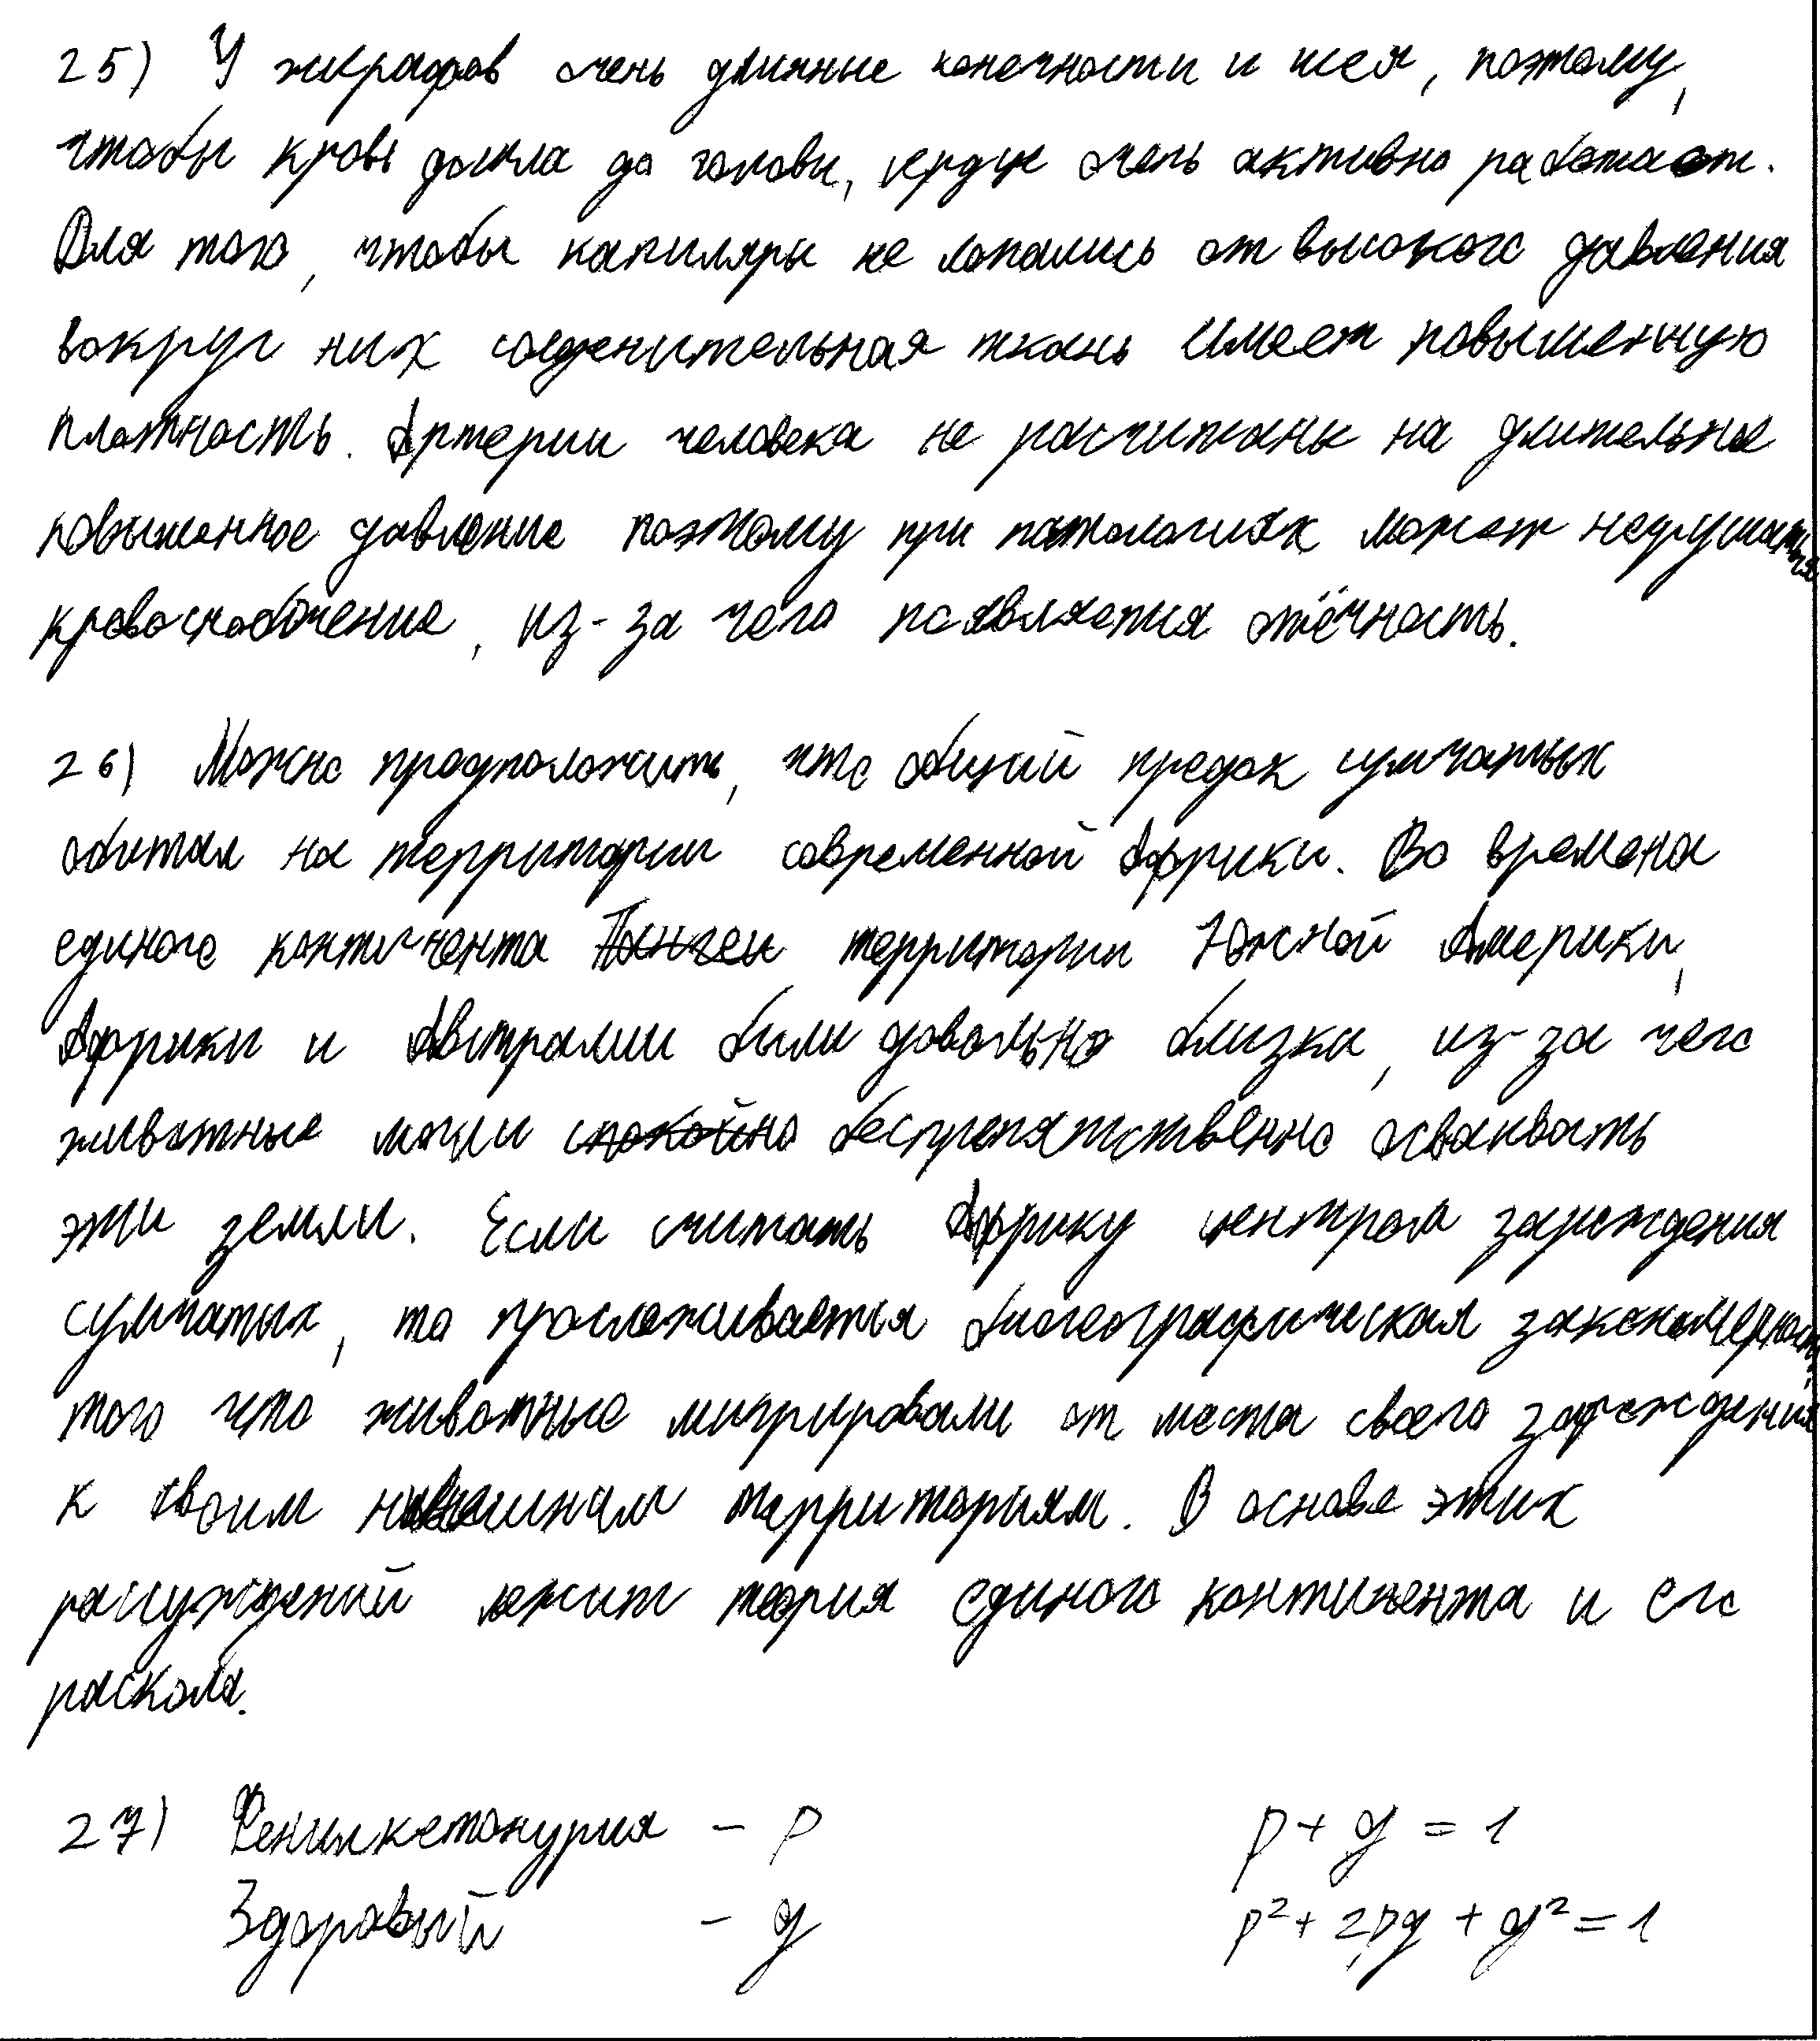 25) У жирафов очень длинные конечности и шея, поэтому,
чтобы кровь дошла до головы, сердце очень активно работает.
Для того, чтобы капиляры не лопались от высокого давления
вокруг них соеденительная ткань имеет повышенную
плотность. Артерии человека не расчитаны на длительное
повышенное давление поэтому при патологиях может нарушаться
кровоснобжение, из-за чего появляется отёчность.
26) Можно предположить, что общий предок сумчатых
обитал на территории современной Африки. Во времена
единого континента Пангеи территории Южной Америки,
Африки и Австралии были довольно близки, из-за чего
животные могли спокойно беспрепятственно осваивать
эти земли. Если считать Африку центром зарождения
сумчатых, то прослеживается биогеографическая закономерность
того что животные мигрировали от места своего зарождения
к своим нынешним территориям. В основе этих
рассуждений лежит теория единого континента и его
раскола.
27) Фенилкетонурия – p p + q = 1
Здоровый – q p² + 2pq + q² = 1